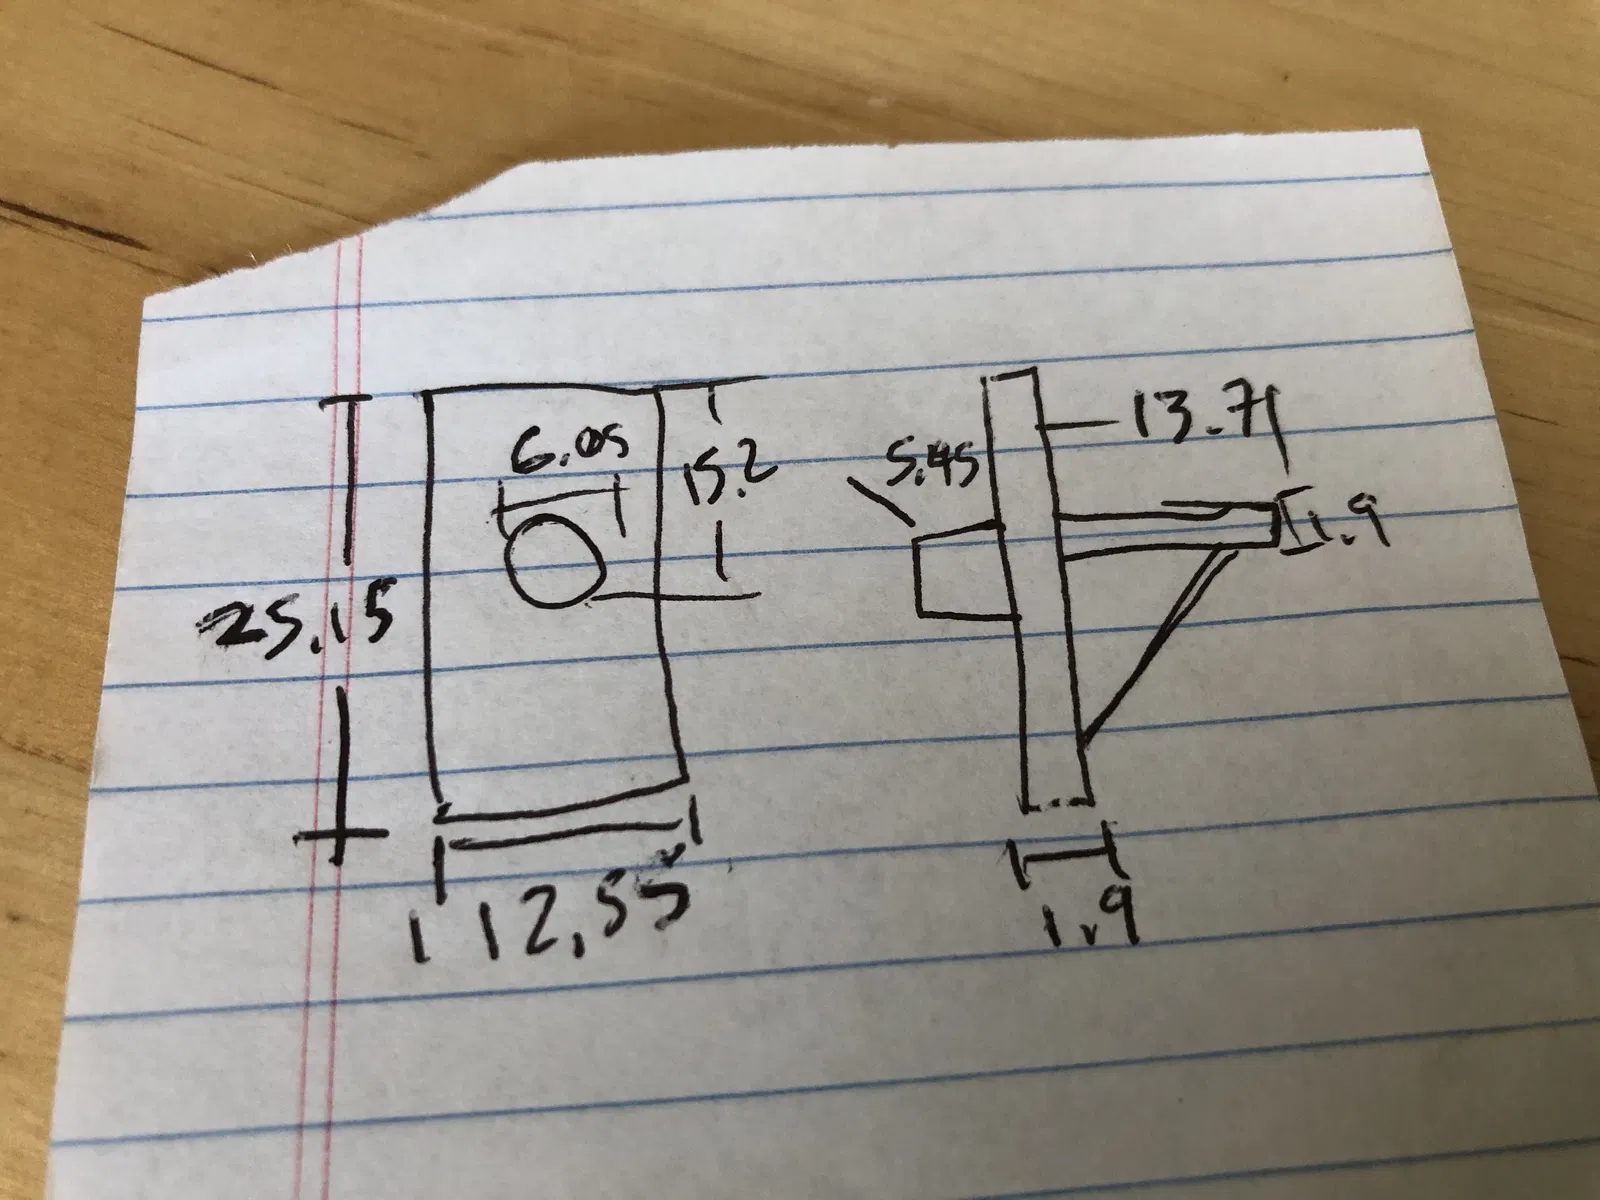 6.05
15.2
25.15
12.55
5.45
13.7
1.9
1.9